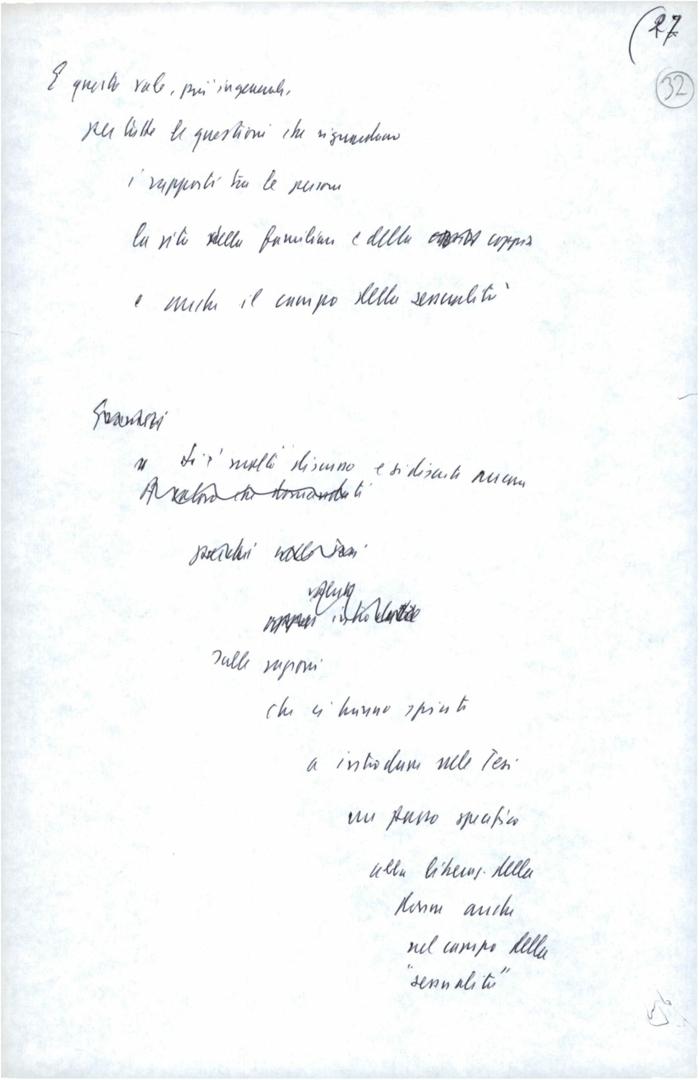 27
32
E questo vale, più in generale,
per tutte le questioni che riguardano
i rapporti tra le persone
la vita della famiglia e della coppia
e anche il campo della sessualità
Si è molto discusso e si discute ancora
sulle ragioni
che ci hanno spinto
a introdurre nelle Tesi
un passo specifico
alla liberaz. della
donna anche
nel campo della
"sessualità"